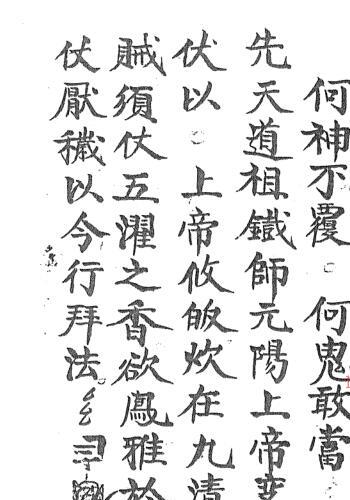 何神不覆。何鬼敢當
先天道祖鐵師元陽上帝
伏以。上帝攸皈炊在九清
賊須仗五濯之香欲鳳雅於
仗厭穢以今行拜法